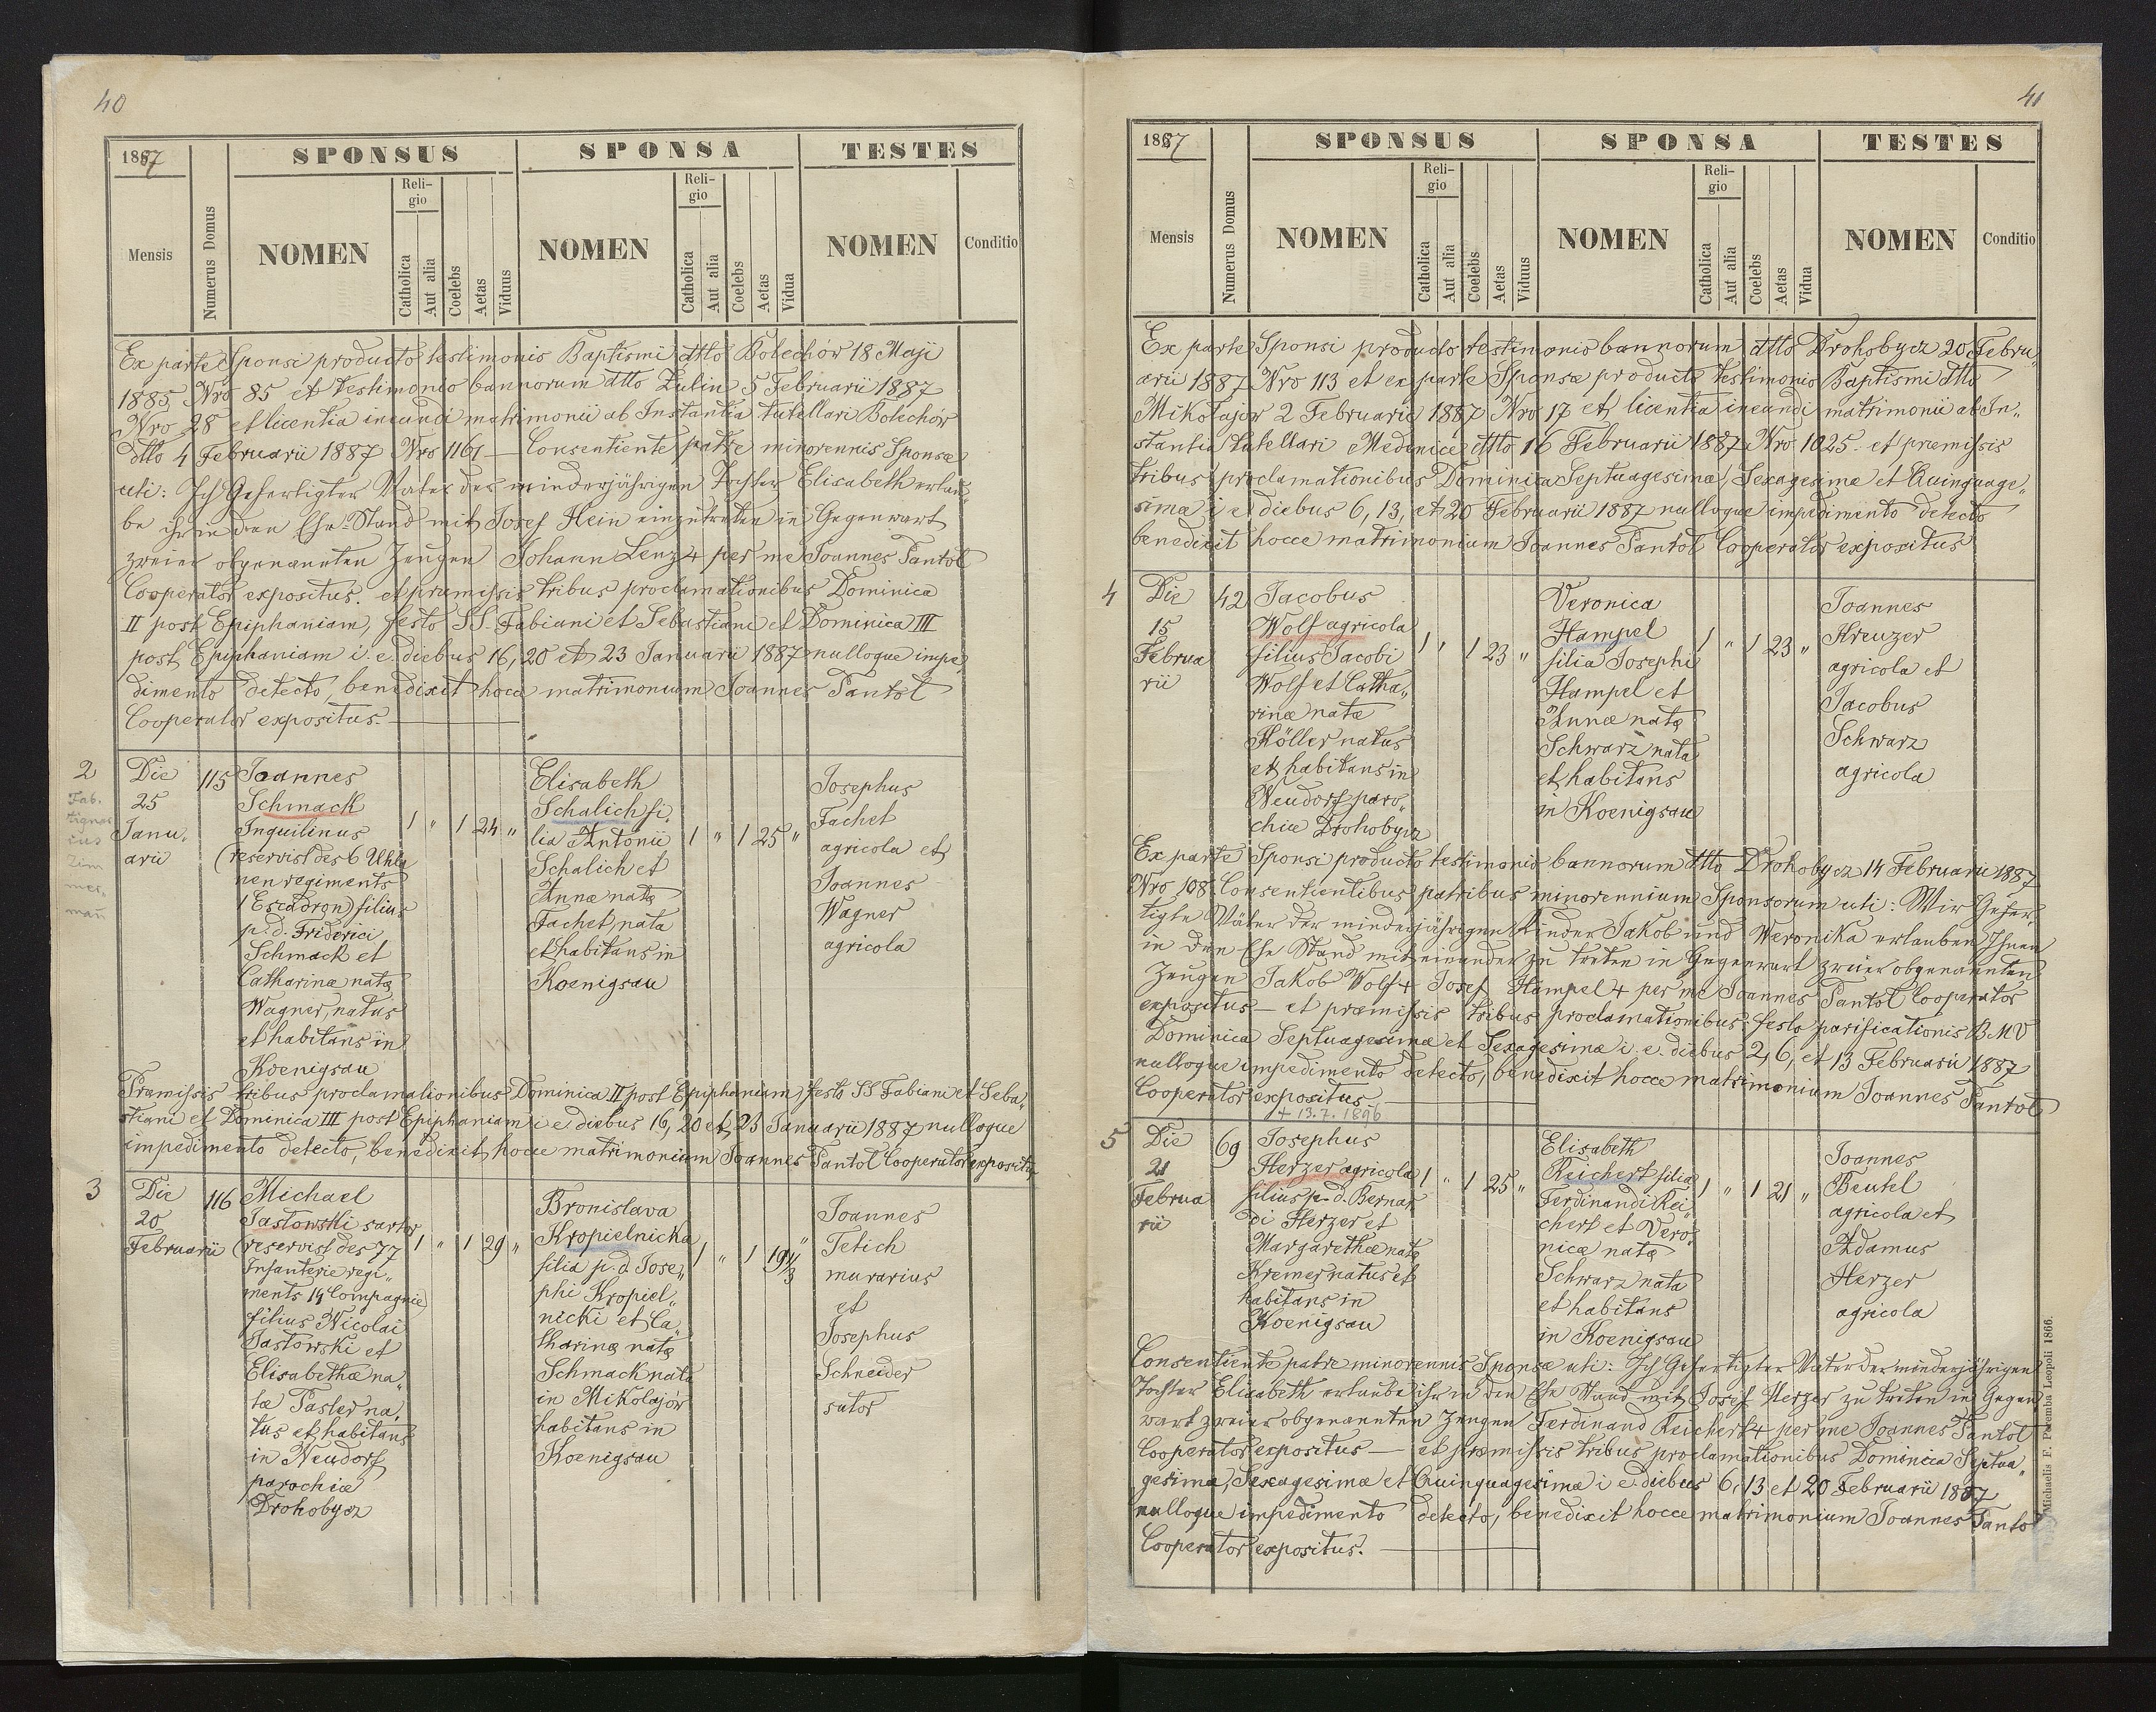 40
1887
SPONSUS
SPONSA
TESTES
Mensis
Numerus Domus
NOMEN
Religio
Catholica
Aut alia
Coelebs
Aetas
Viduus
NOMEN
Religio
Catholica
Aut alia
Coelebs
Aetas
Vidua
NOMEN
Conditio
Ex parte Sponsi producto testimonio Baptismi dtto Bolechów 18 Maji
1885 Nro 85 et testimonio bannorum dtto Zulin 5 Februarii 1887
Nro 28 et licentia ineundi matrimonii ab Instantia tutellari Bolechów
dtto 4 Februarii 1887 Nro 1161 — Consentiente patre minorennis Sponsæ
uti: Ich Gefertigter Vater der minderjährigen Tochter Elisabeth erlau„
be ihr in den Ehe-Stand mit Josef Hein einzutreten in Gegenwart
zweier obgenannten Zeugen Johann Lenz + per me Joannes Pantoł
Cooperator expositus. et præmissis tribus proclamationibus Dominica
II post Epiphaniam, festo SS. Fabiani et Sebastiani et Dominica III
post Epiphaniam i. e. diebus 16, 20 et 23 Januarii 1887 nulloque impe„
dimento detecto, benedixit hocce matrimonium Joannes Pantoł
Cooperator expositus.
2
Die
25
Janu„
arii
115
Joannes
Schmack
Inquilinus
(reservist des 6 Uhla
nen regiments
1 Escadron) filius
p. d. Friderici
Schmack et
Catharinæ natæ
Wagner, natus
et habitans in
Koenigsau
1 " 1 24 "
Elisabeth
Schalich fi„
lia Antonii
Schalich et
Annæ natæ
Fachet, nata
et habitans in
Koenigsau
1 " 1 25 "
Josephus
Fachet
agricola et
Joannes
Wagner
agricola
Præmissis tribus proclamationibus Dominica II post Epiphaniam, festo SS Fabiani et Seba„
stiani et Dominica III post Epiphaniam i e diebus 16, 20 et 23 Januarii 1887 nulloque
impedimento detecto, benedixit hocce matrimonium Joannes Pantoł Cooperator expositus
3
Die
20
Februarii
116
Michael
Jastowski sartor
(reservist des 77
Infanterie regi„
ments 14 Compagnie)
filius Nicolai
Jastowski et
Elisabethæ na„
tæ Pasler na„
tus et habitans
in Neudorf
parochiæ
Drohobycz
1 " 1 29 "
Bronislava
Kropielnicka
filia p. d. Jose„
phi Kropiel„
nicki et Ca„
tharinæ natæ
Schmack nata
in Mikołajów
habitans in
Koenigsau
1 " 1 19 1/3 "
Joannes
Tetich
murarius
et
Josephus
Schneider
sutor
41
1887
SPONSUS
SPONSA
TESTES
Mensis
Numerus Domus
NOMEN
Religio
Catholica
Aut alia
Coelebs
Aetas
Viduus
NOMEN
Religio
Catholica
Aut alia
Coelebs
Aetas
Vidua
NOMEN
Conditio
Ex parte Sponsi producto testimonio bannorum dtto Drohobycz 20 Febru„
arii 1887 Nro 113 et ex parte Sponsæ producto testimonio Baptismi dtto
Mikołajów 2 Februarii 1887 Nro 17 et licentia ineundi matrimonii ab In„
stantia tutellari Medenice dtto 16 Februarii 1887 Nro 1025. et præmissis
tribus proclamationibus Dominica Septuagesimæ, Sexagesimæ et Quinquage„
simæ i e diebus 6, 13, et 20 Februarii 1887 nulloque impedimento detecto
benedixit hocce matrimonium Joannes Pantoł Cooperator expositus
4
Die
15
Februa
rii
42
Jacobus
Wolf agricola
filius Jacobi
Wolf et Catha„
rinæ natæ
Köller natus
et habitans in
Neudorf paro„
chiæ Drohobycz
1 " 1 23 "
Veronica
Hampel
filia Josephi
Hampel et
Annæ natæ
Schwarz nata
et habitans
in Koenigsau
1 " 1 23 "
Joannes
Kreuzer
agricola et
Jacobus
Schwarz
agricola
Ex parte Sponsi producto testimonio bannorum dtto Drohobycz 14 Februarii 1887
Nro 108. Consentientibus patribus minorennium Sponsorum uti: Wir Gefer„
tigte Väter der minderjährigen Kinder Jakob und Weronika erlauben Ihnen
in den Ehe Stand mit einander zu treten in Gegenwart zweier obgenannten
Zeugen Jakob Wolf + Josef Hampel + per me Joannes Pantoł Cooperator
expositus — et præmissis tribus proclamationibus festo purificationis B. M V
Dominica Septuagesimæ et Sexagesimæ i. e. diebus 2, 6, et 13 Februarii 1887
nulloque impedimento detecto, benedixit hocce matrimonium Joannes Pantoł
Cooperator expositus
+ 13.7.1896
5
Die
21
Februa
rii
69
Josephus
Herzer agricola
filius p. d. Bernar
di Herzer et
Margarethæ natæ
Kremer natus et
habitans in
Koenigsau
1 " 1 25 "
Elisabeth
Reichert filia
Ferdinandi Rei„
chert et Vero„
nicæ natæ
Schwarz nata
et habitans
in Koenigsau
1 " 1 21 "
Joannes
Beutel
agricola et
Adamus
Herzer
agricola
Consentiente patre minorennis Sponsæ uti: Ich Gefertigter Vater der minderjährigen
Tochter Elisabeth erlaube ihr in den Ehe Stand mit Josef Herzer zu treten in Gegen
wart zweier obgenannten Zeugen Ferdinand Reichert + per me Joannes Pantoł
Cooperator expositus — et præmissis tribus proclamationibus Dominica Septua„
gesimæ, Sexagesimæ et Quinquagesimæ i e. diebus 6, 13 et 20 Februarii 1887
nulloque impedimento detecto, benedixit hocce matrimonium Joannes Pantoł
Cooperator expositus.
Michaelis F. Poremba Leopoli 1866.